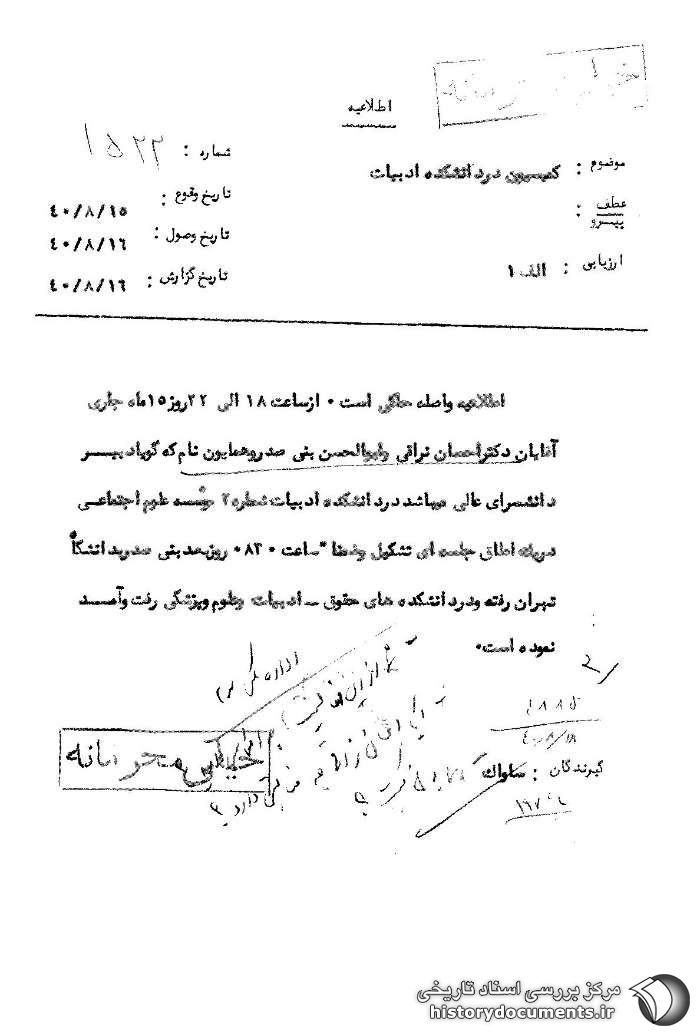 خیلی محرمانه
اطلاعیه
شماره : ۱۵۲۲
موضوع : کمیسیون دردانشکده ادبیات
تاریخ وقوع : ۴۰/۸/۱۵
عطف
پیرو :
تاریخ وصول : ۴۰/۸/۱۶
ارزیابی : الف ۱
تاریخ گزارش : ۴۰/۸/۱۶
اطلاعیه واصله حاکی است ۰ ازساعت ۱۸ الی ۲۲روز۱۵ماه جاری
آقایان دکتراحسان نراقی وابوالحسن بنی صدروهمایون نام که گویادبیر
دانشسرای عالی میباشد دردانشکده ادبیات شماره ۲ موسسه علوم اجتماعی
دریك اطاق جلسه ای تشکیل وضمنا "ساعت ۰۸۳۰ روزبعدبنی صدربدانشگاه
تهران رفته ودردانشکده های حقوق ـ ادبیات وعلوم وپزشکی رفت وآمد
نموده است۰
اداره کل سوم
۴۰/۸/۱۸
خیلی محرمانه
گیرندگان : ساواك
مرکز بررسی اسناد تاریخی
historydocuments.ir